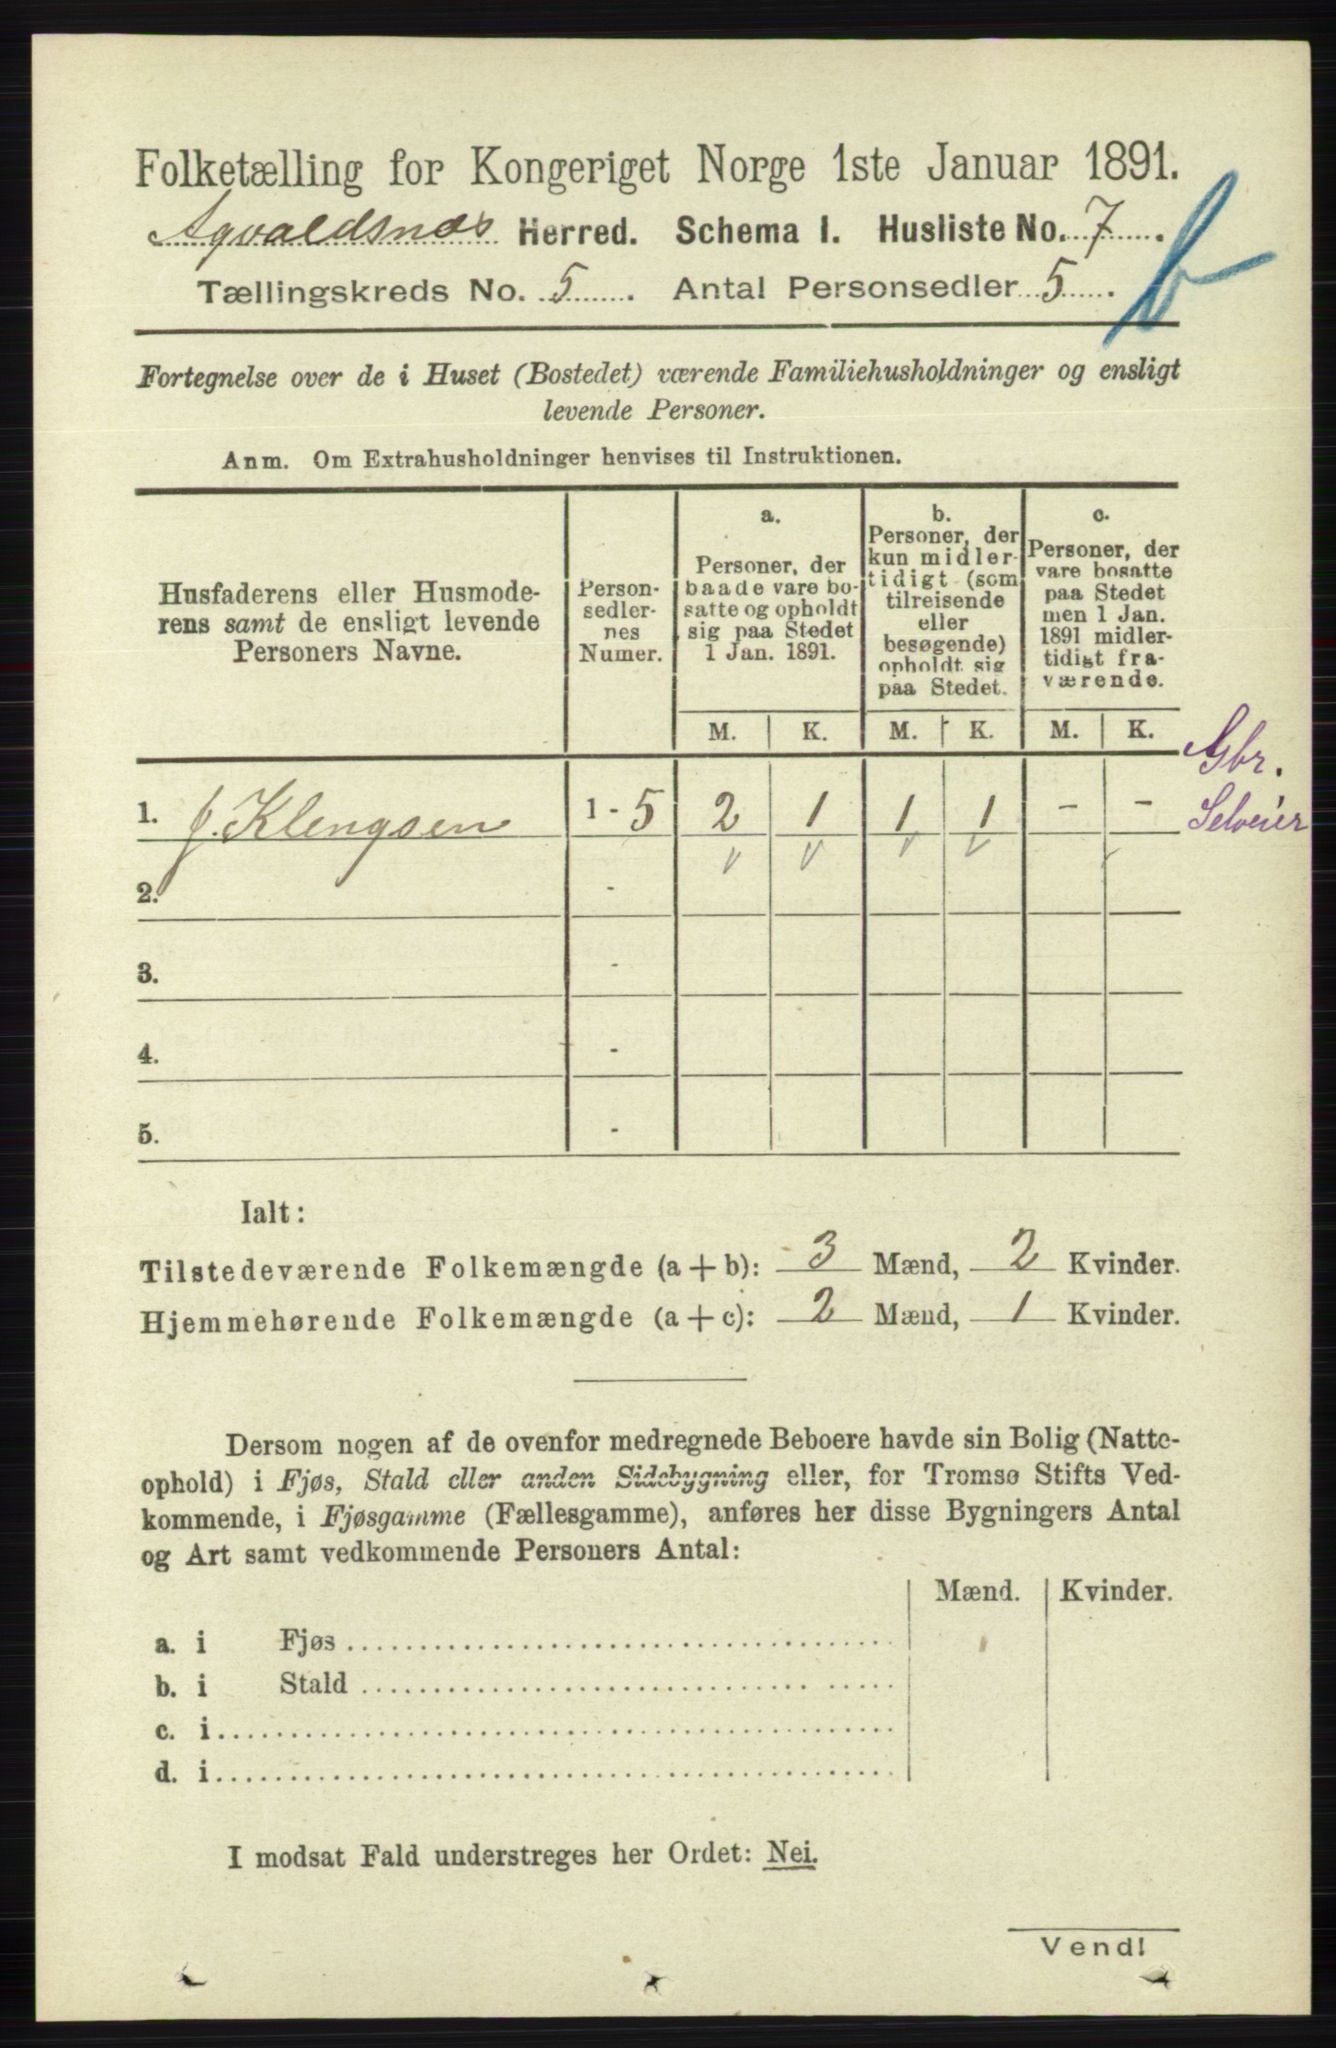 Folketælling for Kongeriget Norge 1ste Januar 1891.
Agvaldsnæs Herred. Schema I. Husliste No. 7.
Tællingskreds No. 5. Antal Personsedler 5. b
Fortegnelse over de i Huset (Bostedet) værende Familiehusholdninger og ensligt
levende Personer.
Anm. Om Extrahusholdninger henvises til Instruktionen.
Husfaderens eller Husmode-
rens samt de ensligt levende
Personers Navne.
Person-
sedler-
nes
Numer.
a.
Personer, der
baade vare bo-
satte og opholdt
sig paa Stedet
1 Jan. 1891.
b.
Personer, der
kun midler-
tidigt (som
tilreisende
eller
besøgende)
opholdt sig
paa Stedet.
c.
Personer, der
vare bosatte
paa Stedet
men 1 Jan.
1891 midler-
tidigt fra-
værende.
M. K. M. K. M. K.
Gbr.
Selveier
1. J. Klengsen 1 - 5 2 1 1 1 - -
2. -
3. -
4. -
5. -
Ialt:
Tilstedeværende Folkemængde (a + b): 3 Mænd, 2 Kvinder.
Hjemmehørende Folkemængde (a + c): 2 Mænd, 1 Kvinder.
Dersom nogen af de ovenfor medregnede Beboere havde sin Bolig (Natte-
ophold) i Fjøs, Stald eller anden Sidebygning eller, for Tromsø Stifts Ved-
kommende, i Fjøsgamme (Fællesgamme), anføres her disse Bygningers Antal
og Art samt vedkommende Personers Antal:
Mænd. Kvinder.
a. i Fjøs
b. i Stald
c. i
d. i
I modsat Fald understreges her Ordet: Nei.
Vend!